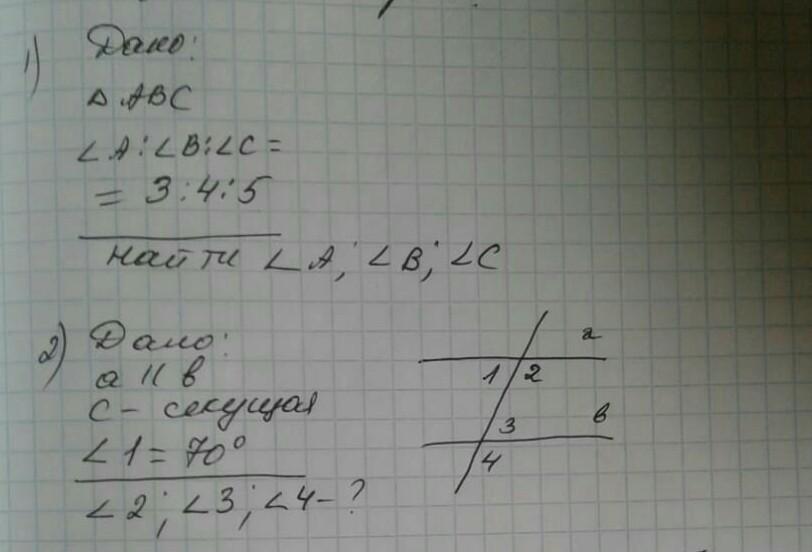 1) Дано:
△ ABC
∠A:∠B:∠C=
= 3:4:5
Найти ∠A; ∠B; ∠C
2) Дано:
a || в
c - секущая
∠1 = 70°
∠2; ∠3; ∠4 - ?
a
1 2
3 в
4